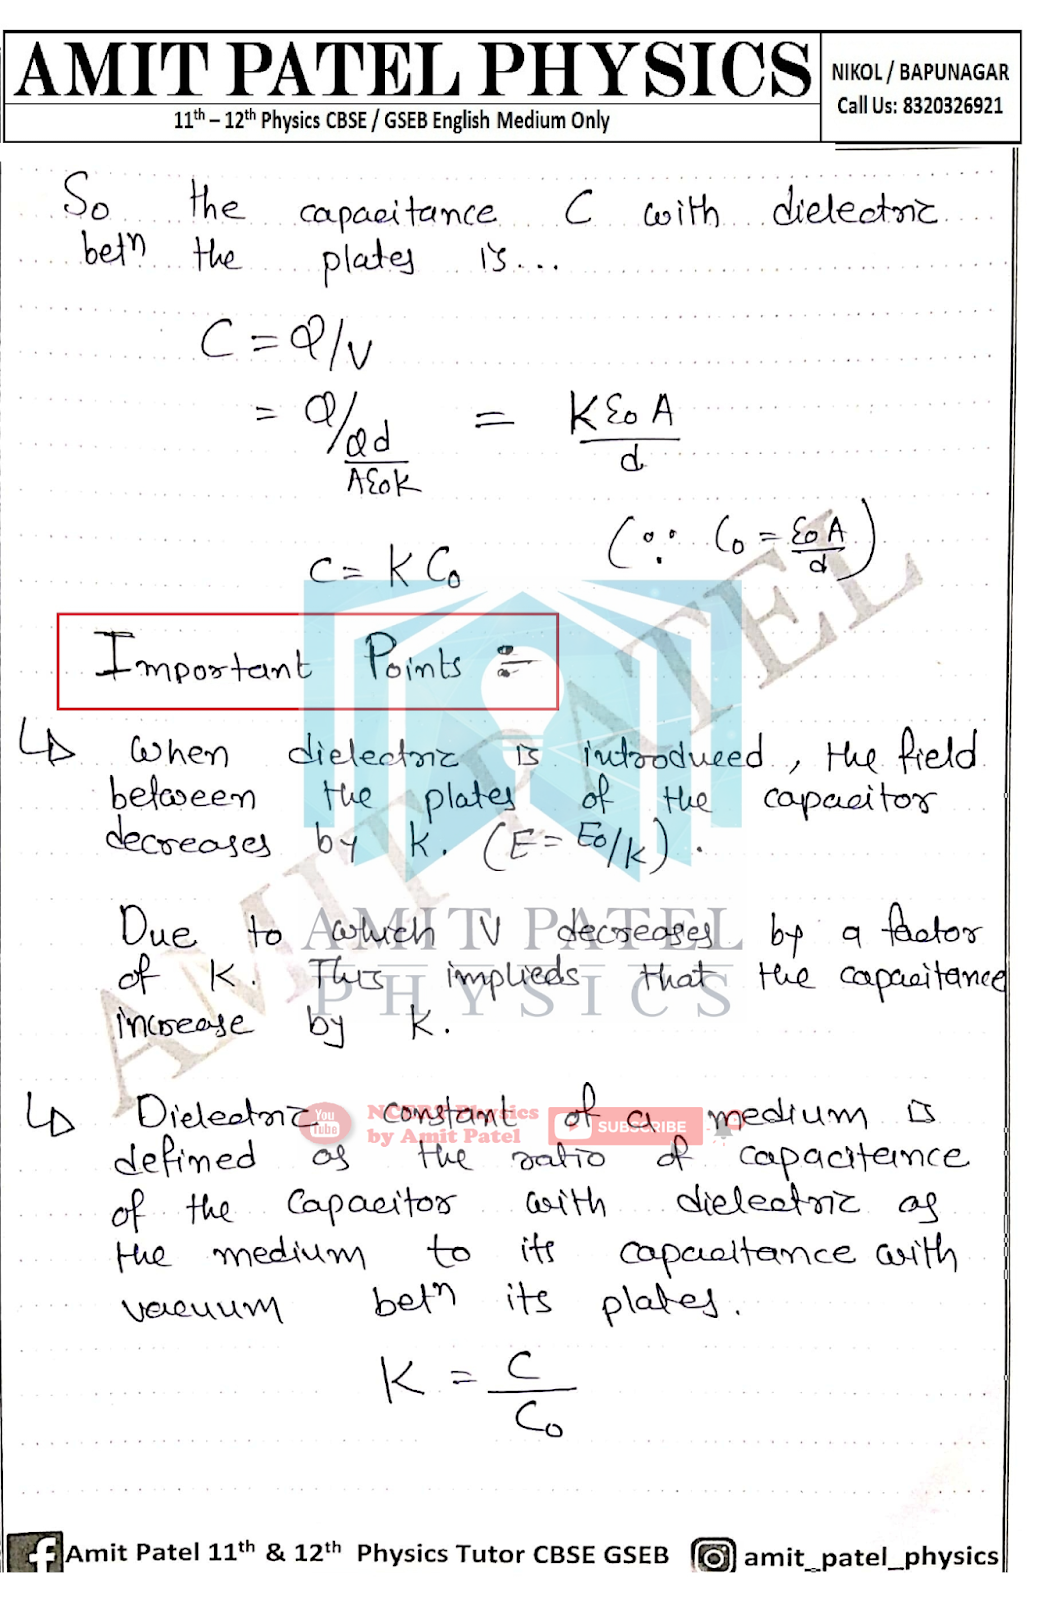 AMIT PATEL PHYSICS
11th – 12th Physics CBSE / GSEB English Medium Only
NIKOL / BAPUNAGAR
Call Us: 8320326921
So the capacitance C with dielectric
betn the plates is...
C = Q/V
= Q/Qd/Aε0K = Kε0A/d
C = KC0 (∵ C0 = ε0A/d)
Important Points :-
↳ When dielectric is introduced, the field
between the plates of the capacitor
decreases by K. (E = E0/K).
Due to which V decreases by a factor
of K. This implieds that the capacitance
increase by K.
↳ Dielectric constant of a medium is
defined as the ratio of capacitance
of the Capacitor with dielectric as
the medium to its capacitance with
vacuum betn its plates.
K = C/C0
AMIT PATEL
AMIT PATEL
PHYSICS
You Tube
NCERT Physics
by Amit Patel
SUBSCRIBE
Amit Patel 11th & 12th Physics Tutor CBSE GSEB
amit_patel_physics